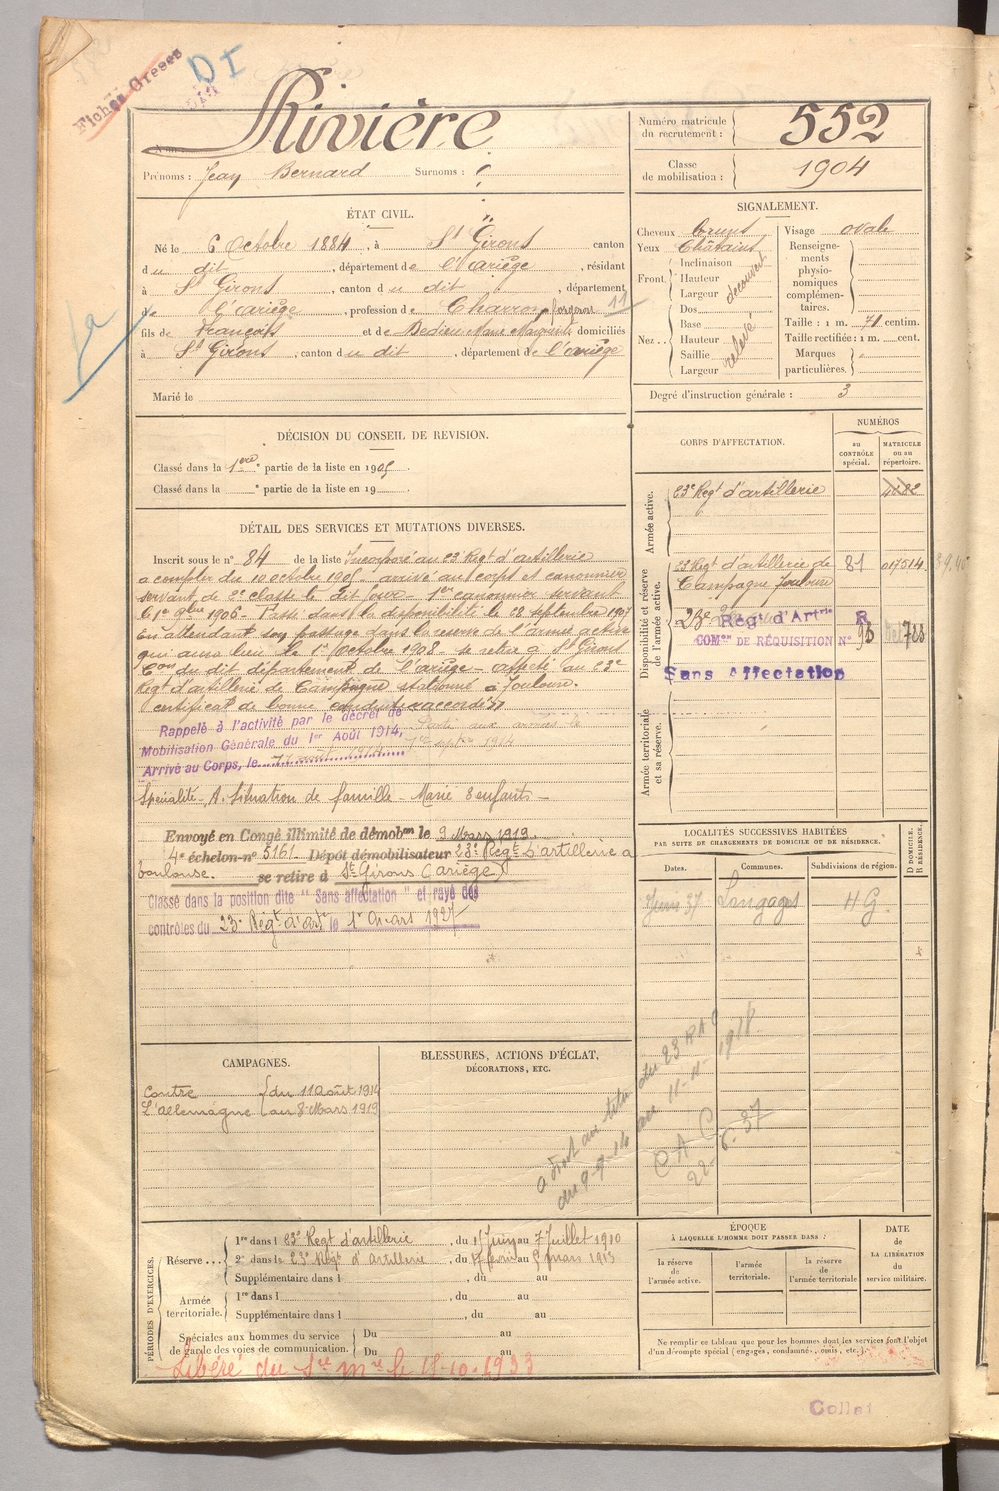 Fiches Greses
DI
Nom : Rivière
Prénoms : Jean Bernard Surnoms :
Numéro matricule du recrutement : 552
Classe de mobilisation : 1904
ÉTAT CIVIL.
Né le 6 Octobre 1884, à St Girons canton
du dit, département de l'Ariège, résidant
à St Girons, canton du dit, département
de l'Ariège, profession de Charron forgeron 11
fils de François et de Bedieu Marie domiciliés
à St Girons, canton du dit, département de l'Ariège
Marié le
SIGNALEMENT.
Cheveux bruns
Yeux Châtains
Front Inclinaison
Hauteur
Largeur
découvert
Nez Dos
Base
Hauteur
Saillie
Largeur
relevé
Visage ovale
Renseignements physionomiques complémentaires.
Taille : 1 m. 71 centim.
Taille rectifiée : 1 m. cent.
Marques particulières.
Degré d'instruction générale : 3
DÉCISION DU CONSEIL DE REVISION.
Classé dans la 1ere partie de la liste en 1905.
Classé dans la partie de la liste en 19
DÉTAIL DES SERVICES ET MUTATIONS DIVERSES.
Inscrit sous le n° 84 de la liste Incorporé au 23 Regt d'artillerie
a compter du 10 octobre 1905 arrivé au corps et canonnier
servant de 2e classe le dit jour. 1er canonnier servant
le 1er 9bre 1906. Passé dans la disponibilité le 28 septembre 1907
En attendant son passage dans la réserve de l'armée active
qui aura lieu le 1er Octobre 1908. se retire a St Girons
Con du dit département de l'Ariège. affecté au 23e
Regt d'artillerie de Campagne stationné à Toulouse.
Certificat de bonne conduite accordé
Rappelé à l'activité par le décret de
Mobilisation Générale du 1er Août 1914,
Arrivé au Corps, le 11 août 1914
Parti aux armées le
sepbre 1914
Spécialité. A. Situation de famille. Marié 3 enfants
Envoyé en Congé illimité de démobon le 9 Mars 1919.
4e échelon n° 5161 Dépôt démobilisateur 23e Regt d'artillerie a
Toulouse. se retire à St Girons (Ariège)
Classé dans la position dite "Sans affectation" et rayé des
contrôles du 23e Régt d'art le 1er Mars 1927
CORPS D'AFFECTATION.
NUMÉROS
au CONTRÔLE spécial.
MATRICULE ou au répertoire.
Armée active.
23e Regt d'artillerie 4282
Disponibilité et réserve de l'armée active.
23 Regt d'artillerie de Campagne Toulouse 81 017514
23e Régt d'Artrie R
COMon DE RÉQUISITION N° 93 788
Sans Affectation
Armée territoriale et sa réserve.
LOCALITÉS SUCCESSIVES HABITÉES
PAR SUITE DE CHANGEMENTS DE DOMICILE OU DE RÉSIDENCE.
Dates. Communes. Subdivisions de région. D DOMICILE. R RÉSIDENCE.
Juin 37 Longages H G.
CAMPAGNES.
Contre l'Allemagne du 11 Août 1914
au 8 Mars 1919
BLESSURES, ACTIONS D'ÉCLAT,
DÉCORATIONS, ETC.
a droit au titre du 23 RAC
du 9-9-14 au 11-11-1918
CAC
22-6-37
PÉRIODES D'EXERCICES.
Réserve... 1re dans l 23e Regt d'artillerie, du 15 Juin au 7 Juillet 1910
2e dans le 23e Regt d'Artillerie, du 17 février au 5 mars 1913
Supplémentaire dans l , du au
Armée territoriale. 1re dans l , du au
Supplémentaire dans l , du au
Spéciales aux hommes du service de garde des voies de communication. Du au
Du au
Libéré du Sce Mre le 15-10-1933
ÉPOQUE
À LAQUELLE L'HOMME DOIT PASSER DANS :
la réserve de l'armée active.
l'armée territoriale.
la réserve de l'armée territoriale
DATE
DE LA LIBÉRATION
du service militaire.
Ne remplir ce tableau que pour les hommes dont les services font l'objet
d'un décompte spécial (engagés, condamnés, omis, etc.)
Collat